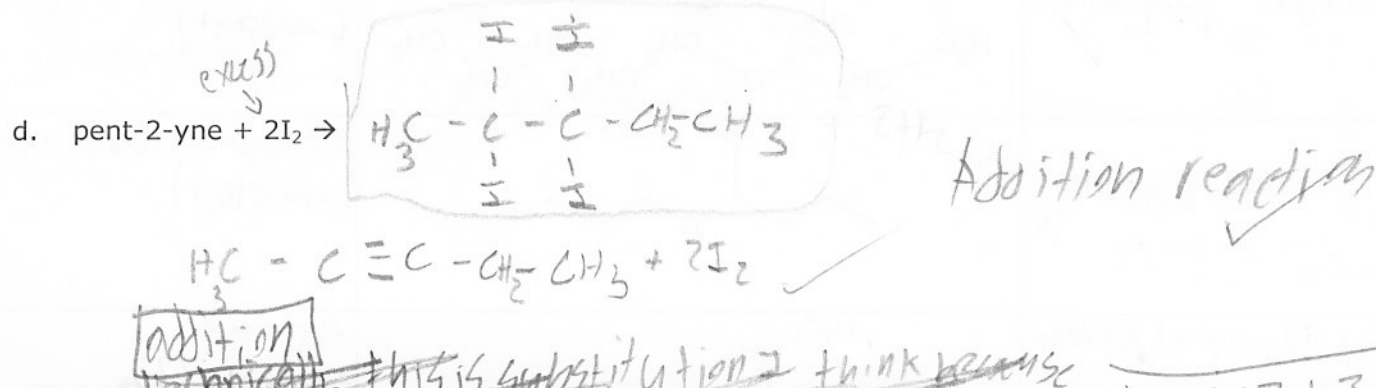 excess
↓
I I
| |
d. pent-2-yne + 2I₂ → H₃C - C - C - CH₂-CH₃
| |
I I
Addition reaction ✓
H₃C - C ≡ C - CH₂-CH₃ + 2I₂ ✓
addition
technically this is substitution I think because